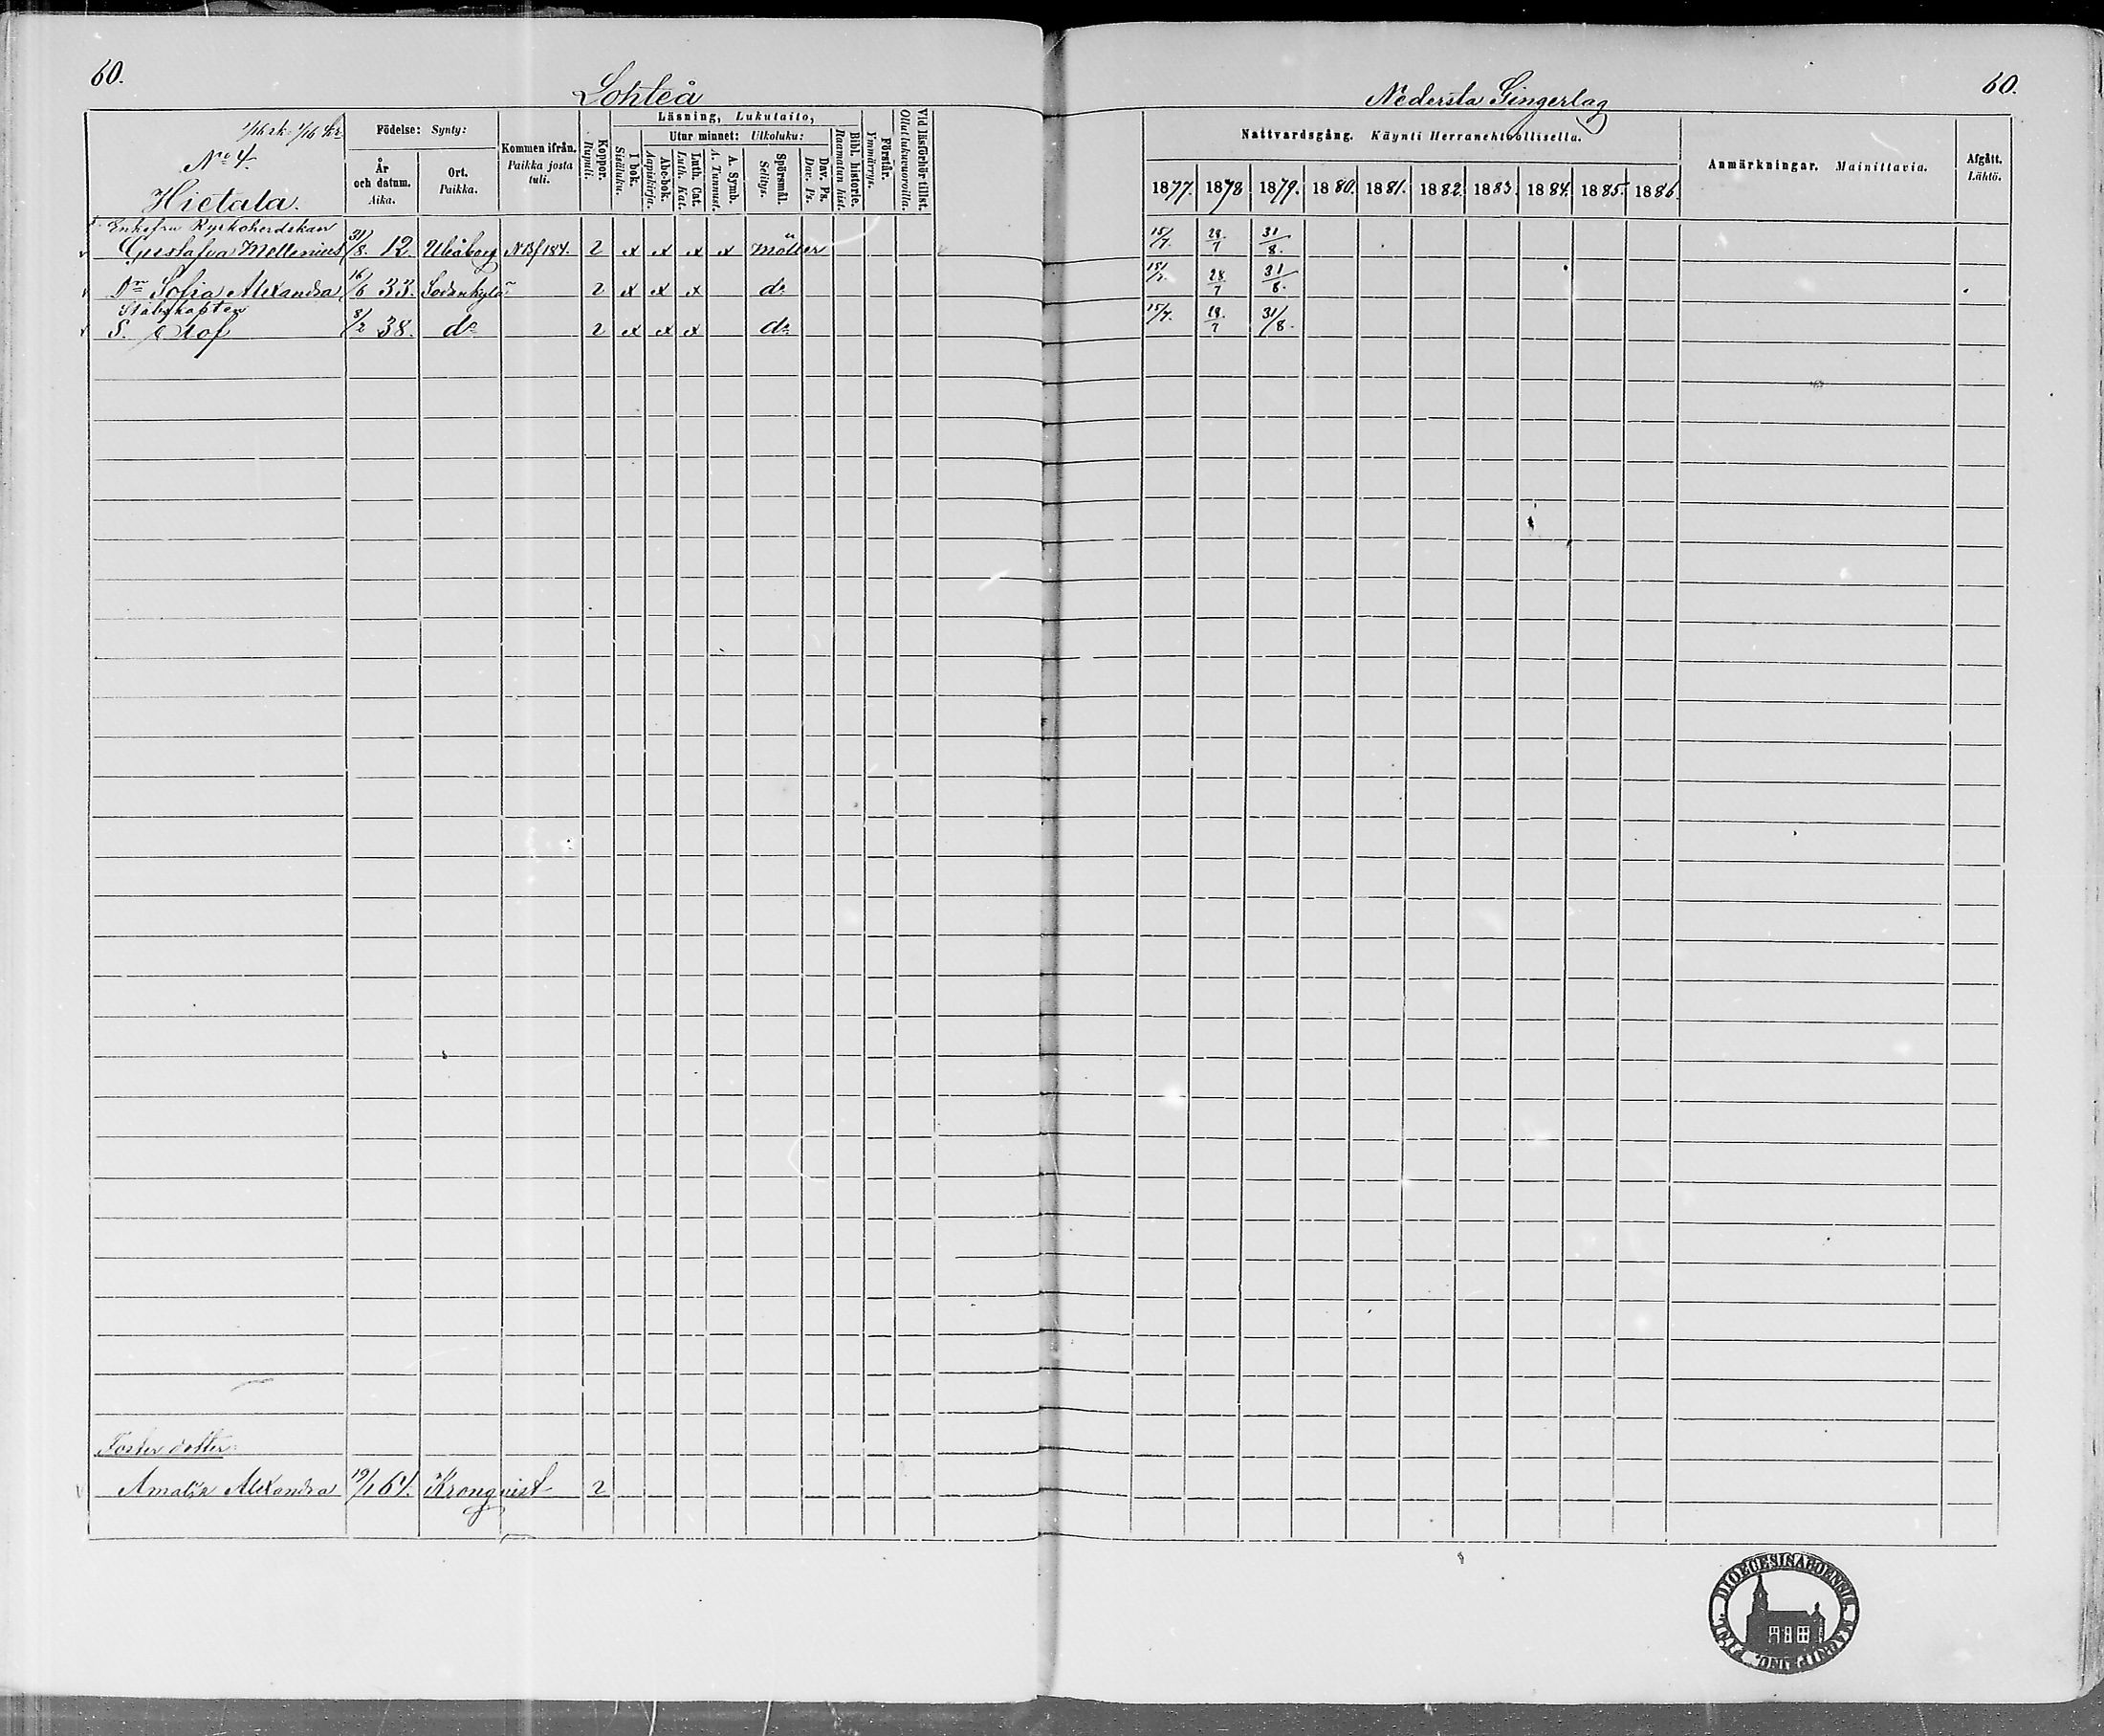 60.
Lohteå
Nedersta Gingerlag
60.
1/16 rk. 1/16 kr.
No 4.
Hietala.
Födelse: Synty:
År och datum. Aika.
Ort. Paikka.
Kommen ifrån. Paikka josta tuli.
Koppor. Rupuli.
Läsning, Lukutaito,
I bok. Sisäluku.
Utur minnet: Ulkoluku:
Abc-bok. Aapiskirja.
Luth. Cat. Luth. Kat.
A. Symb. A. Tunnust.
Spörsmål. Selitys.
Dav. Ps. Dav. Ps.
Bibl. historie. Raamatun hist.
Förstår. Ymmärrys.
Vid läsförhör tillst. Ollut lukuworoilla.
Nattvardsgång. Käynti Herranehtoollisella.
1877. 1878 1879. 1880. 1881. 1882. 1883. 1884. 1885. 1886.
Anmärkningar. Mainittavia.
Afgått. Lähtö.
Enkefru Kyrkoherdskan
Gustafva Mellenius 31/8. 12. Uleåborg N Bf 184. 2 x x x x Möller 15/7. 28/7 31/8.
Dr Sofia Alexandra 16/6 33. Sodankylä 2 x x x do 15/7. 28/7 31/8.
Stabskapten
S. Olof 8/2 38. do 2 x x x do 15/7. 28/7 31/8.
Foster dotter:
Amalia Alexandra 19/1 64. Kronqvist 2
DIOECESIS ABOENSIS